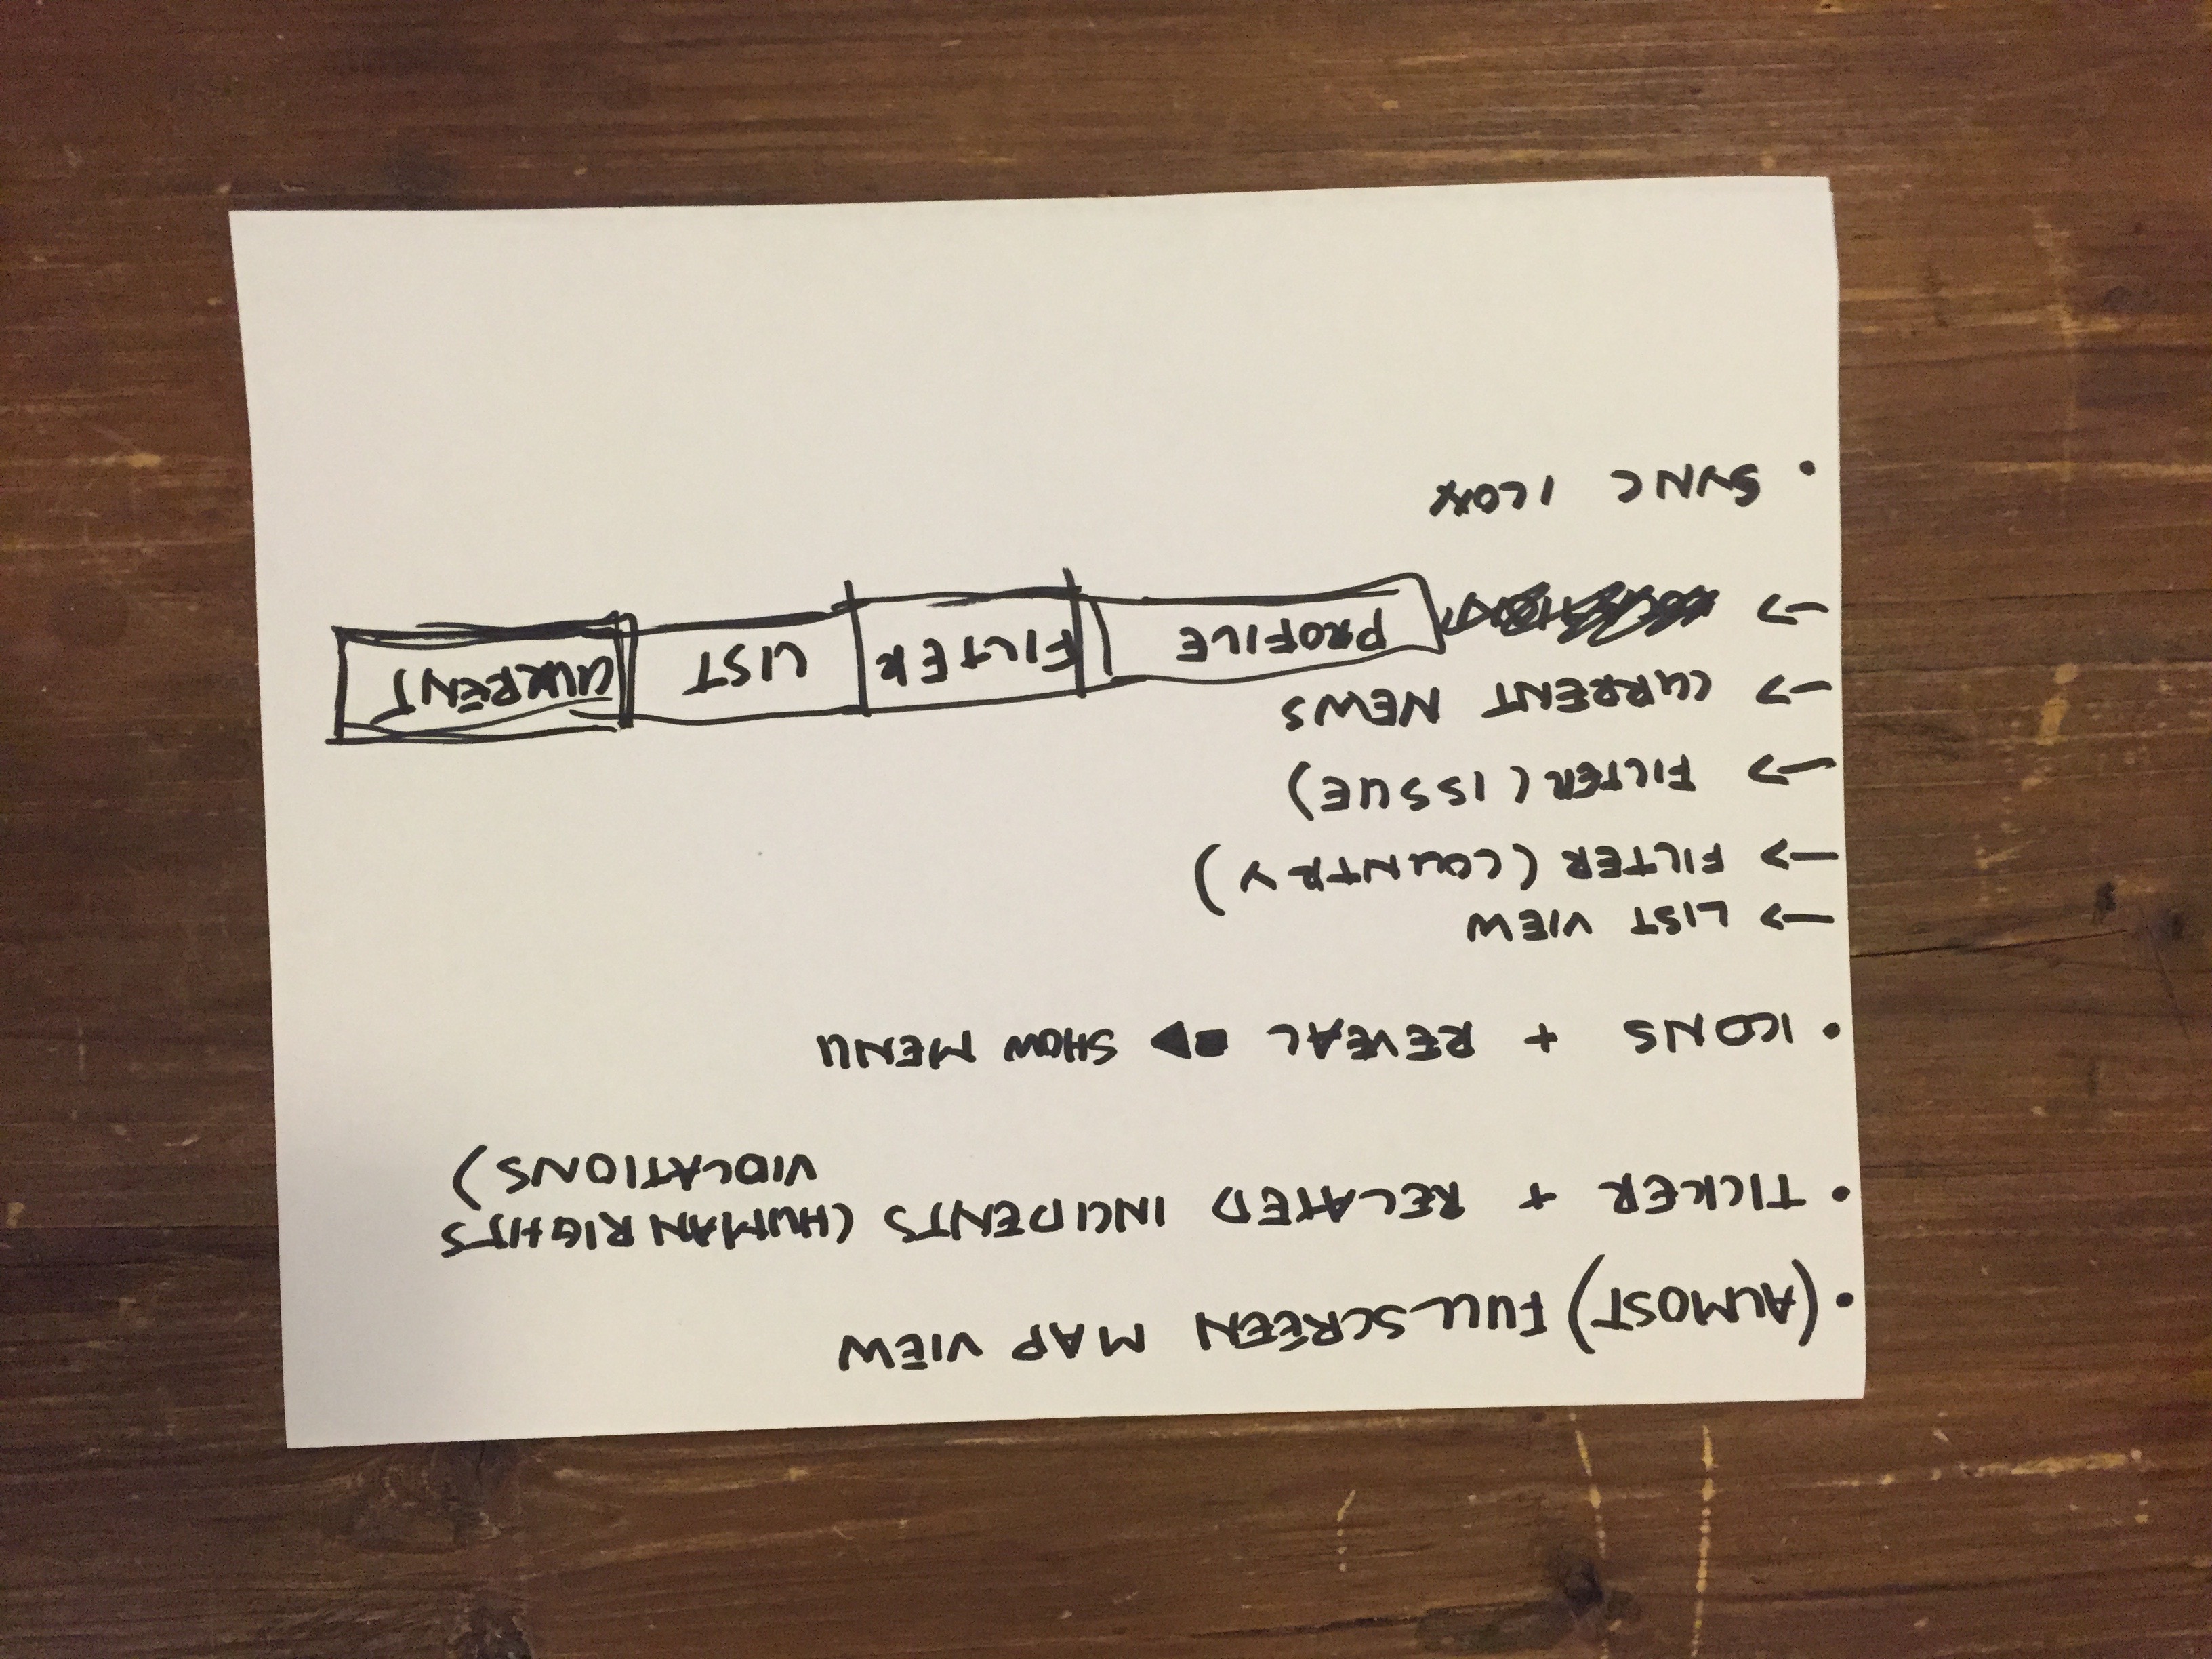 • (ALMOST) FULLSCREEN MAP VIEW
• TICKER + RELATED INCIDENTS (HUMAN RIGHTS
VIOLATIONS)
• ICONS + REVEAL ➡ SHOW MENU
→ LIST VIEW
→ FILTER (COUNTRY)
→ FILTER (ISSUE)
→ CURRENT NEWS
→
PROFILE FILTER LIST CURRENT
• SYNC ICON